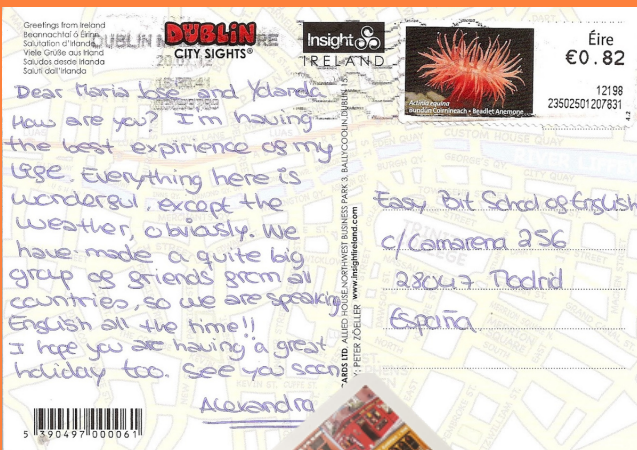 Greetings from Ireland
Beannachtaí ó Éirinn
Salutation d'Irlande
Viele Grüße aus Irland
Saludos desde Irlanda
Saluti dall'Irlanda
DUBLIN
CITY SIGHTS®
Insight
IRELAND
Actinia equina
Bundún Coirnineach • Beadlet Anemone
Éire
€0.82
12198
23502501207831
4.2
Dear Maria Jose and Yolanda
How are you? I'm having
the best expirience of my
life. Everything here is
wonderful, except the
weather, obviously. We
have made a quite big
group of friends from all
countries, so we are speaking
English all the time!!
I hope you are having a great
holiday too. See you soon
Alexandra
5 390497 000061
CARDS LTD. ALLIED HOUSE, NORTH-WEST BUSINESS PARK 3, BALLYCOOLIN, DUBLIN 15.
Y: PETER ZÖELLER www.insightireland.com
Easy Bit School of English
c/Camarena 256
28047 Madrid
España